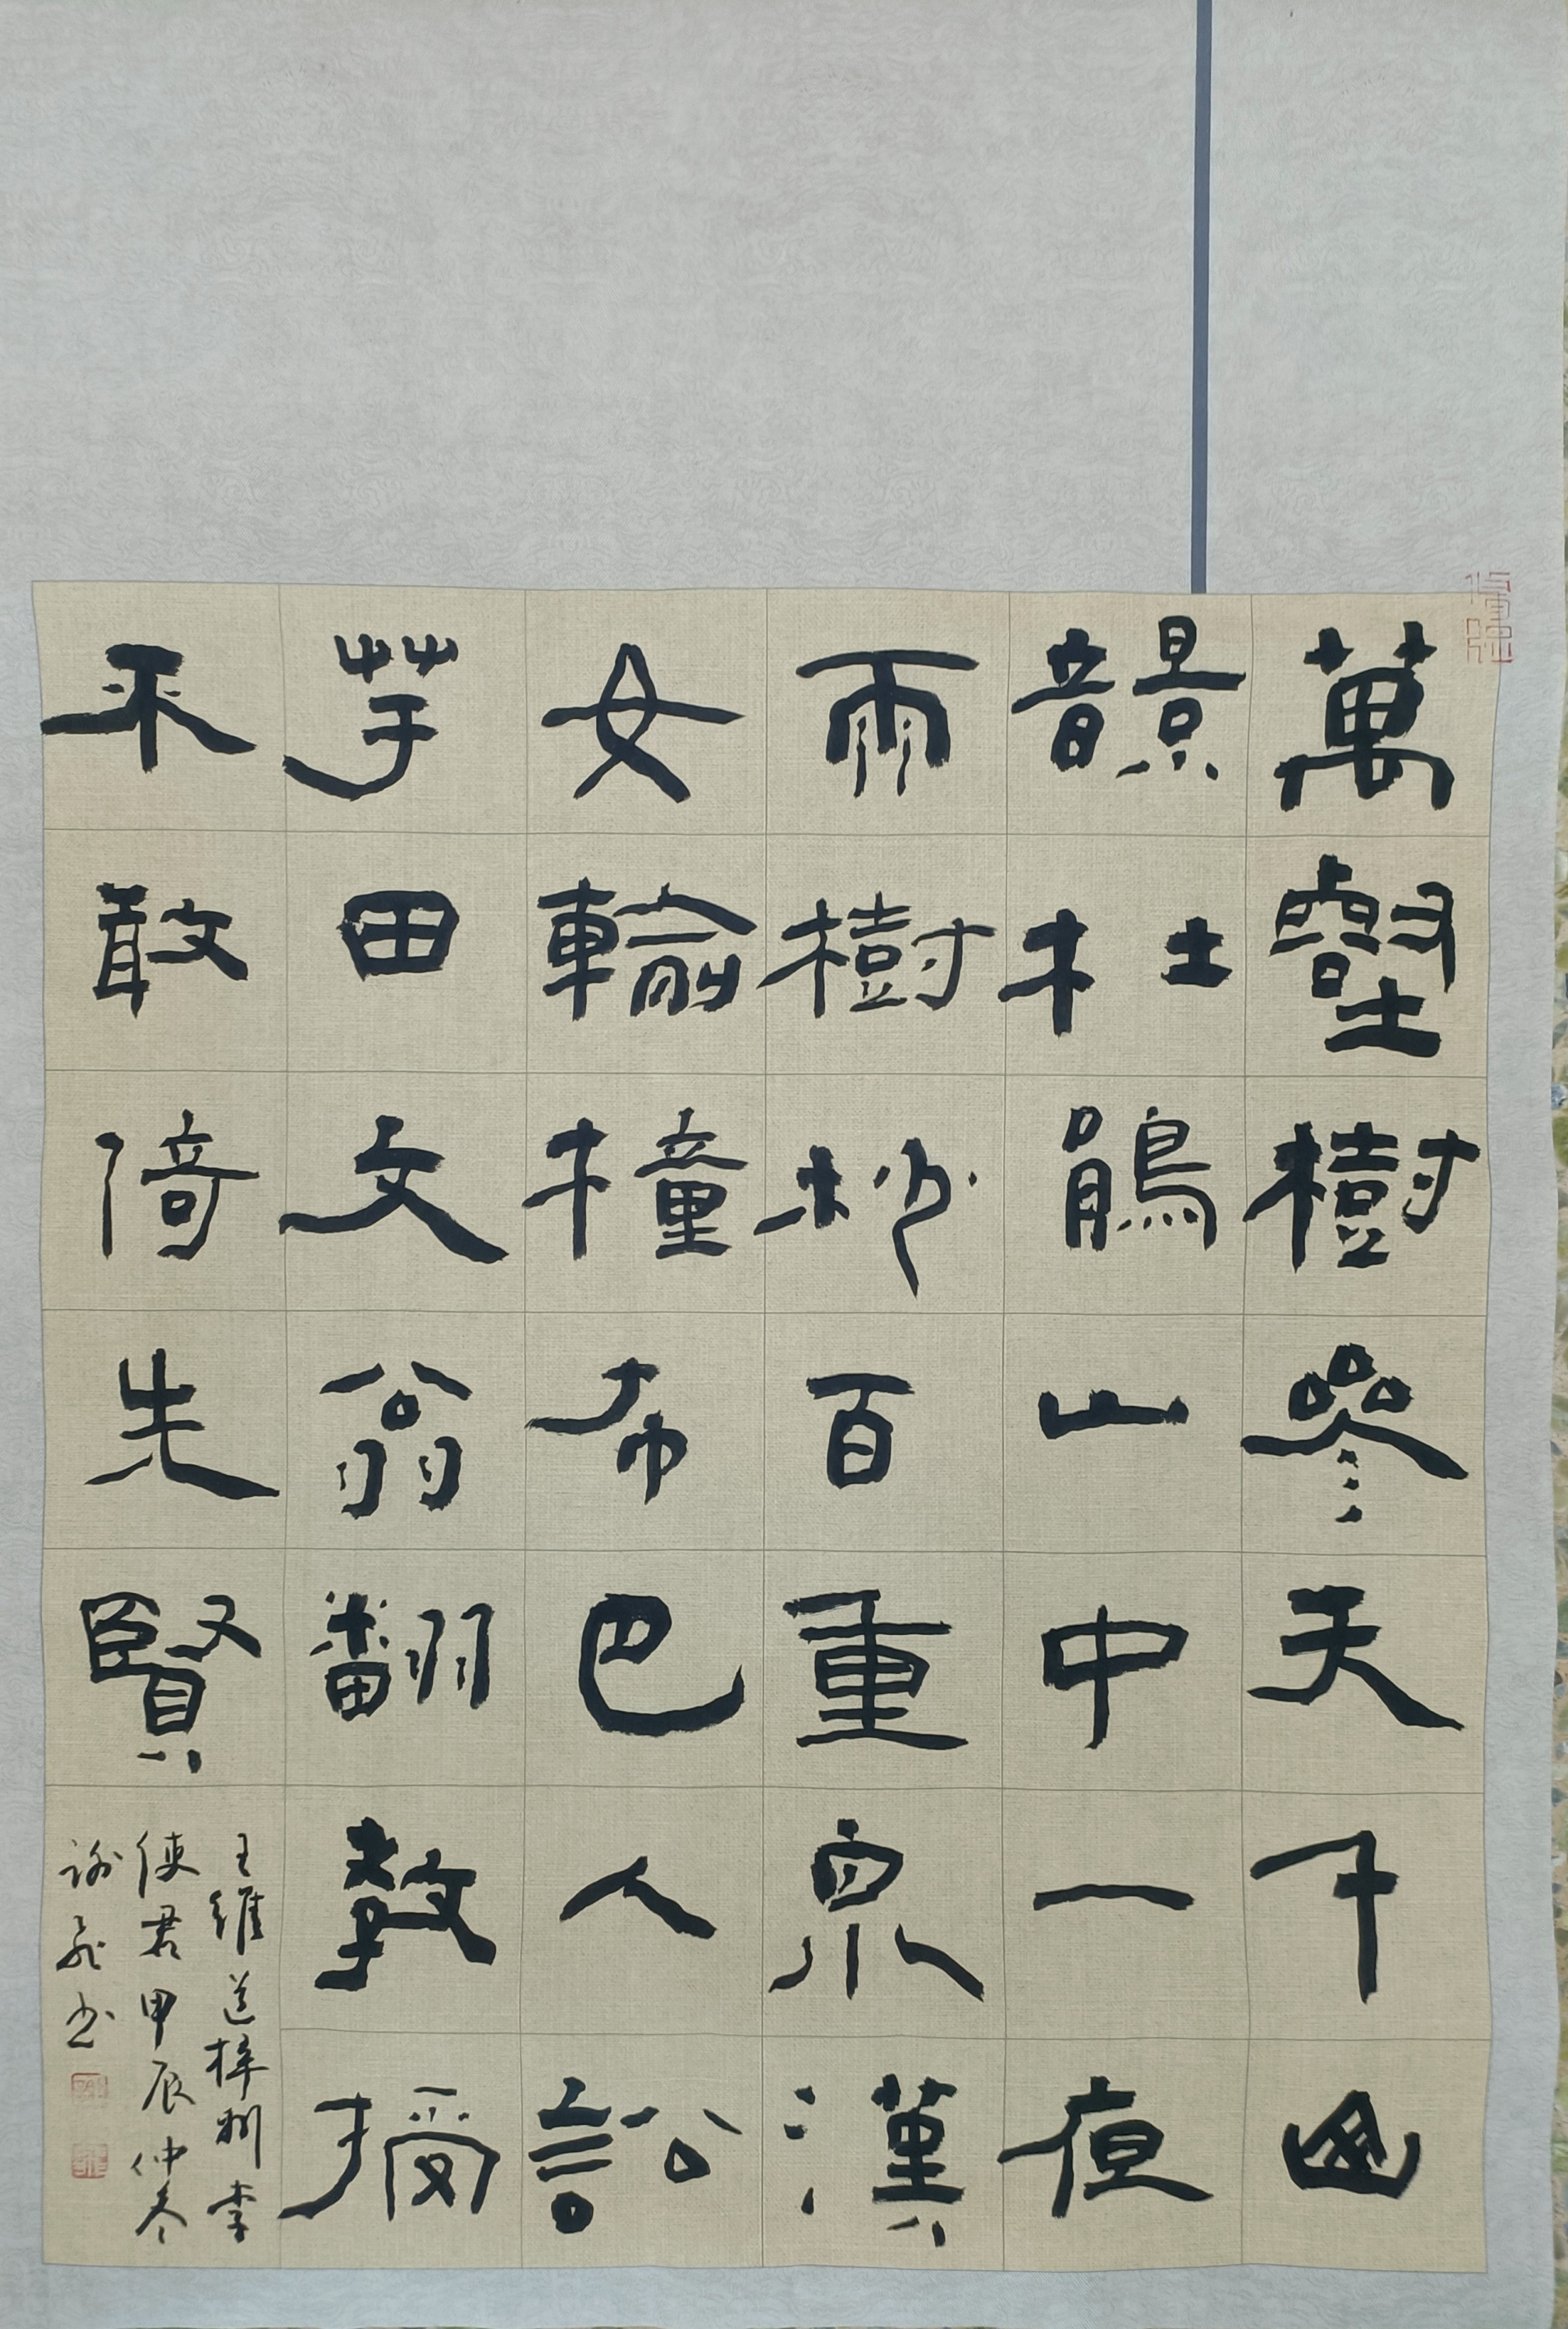 萬壑樹參天千山
響杜鵑山中一夜
雨樹杪百重泉漢
女輸橦布巴人訟
芋田文翁翻教授
不敢倚先賢
王維送梓州李
使君甲辰仲冬
谢飛书